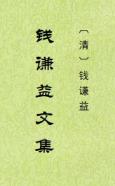 〔清〕钱谦益
钱谦益文集